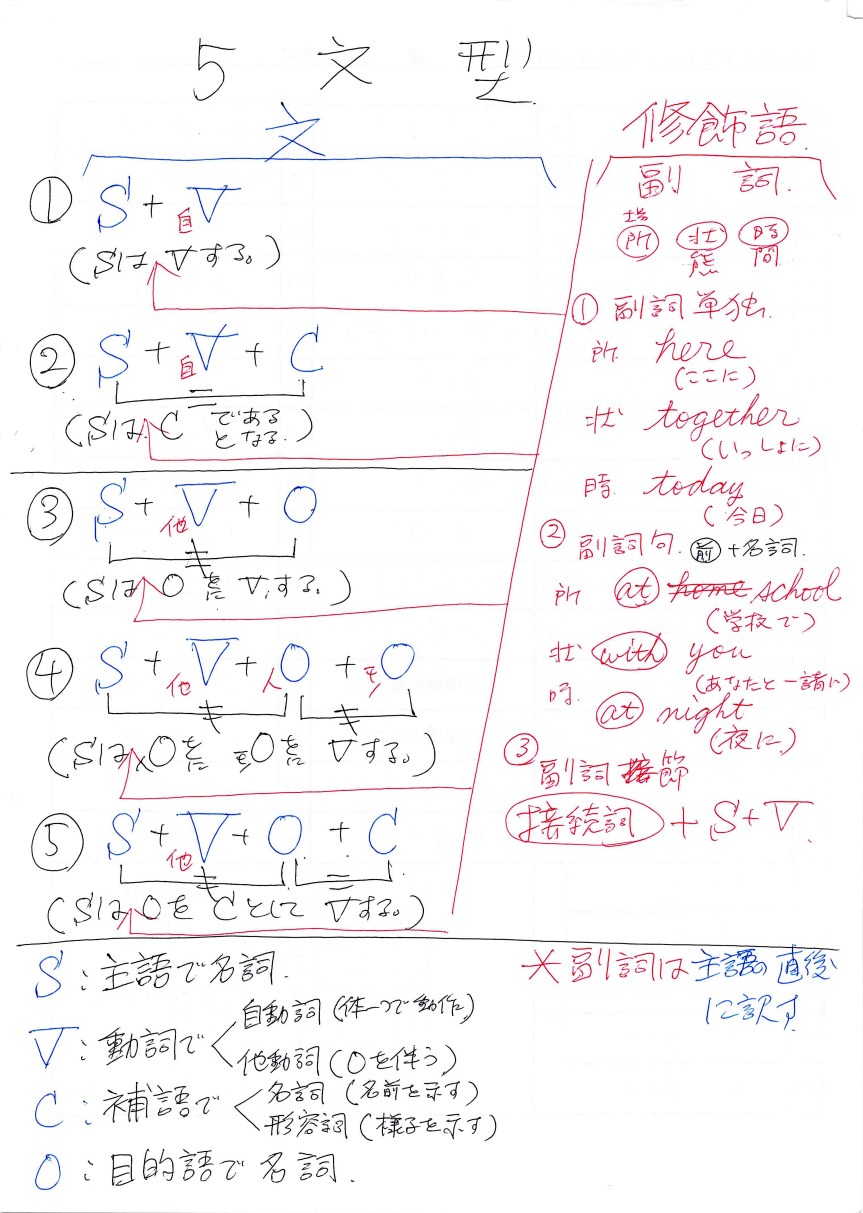 5 文型
文
① S + 自V
(Sは Vする。)
② S + 自V + C
=
(Sは C である
となる。)
③ S + 他V + O
≠
(Sは Oを
に Vする。)
④ S + 他V + 人O + モノO
≠ ≠
(Sは 人Oを
に モノOを
に Vする。)
⑤ S + 他V + O + C
≠ =
(Sは Oを Cとして Vする。)
修飾語
副詞
場所 状態 時間
① 副詞単独.
所. here
(ここに)
状 together
(いっしょに)
時. today
(今日)
② 副詞句. 前+名詞.
所 at home school
(学校で)
状 with you
(あなたと一諸に)
時. at night
(夜に)
③ 副詞節
接続詞 + S+V
S : 主語で名詞.
V : 動詞で
自動詞 (体一つで動作)
他動詞 (Oを伴う)
C : 補語で
名詞 (名前を示す)
形容詞 (様子を示す)
O : 目的語で名詞.
* 副詞は主語の直後
に訳す